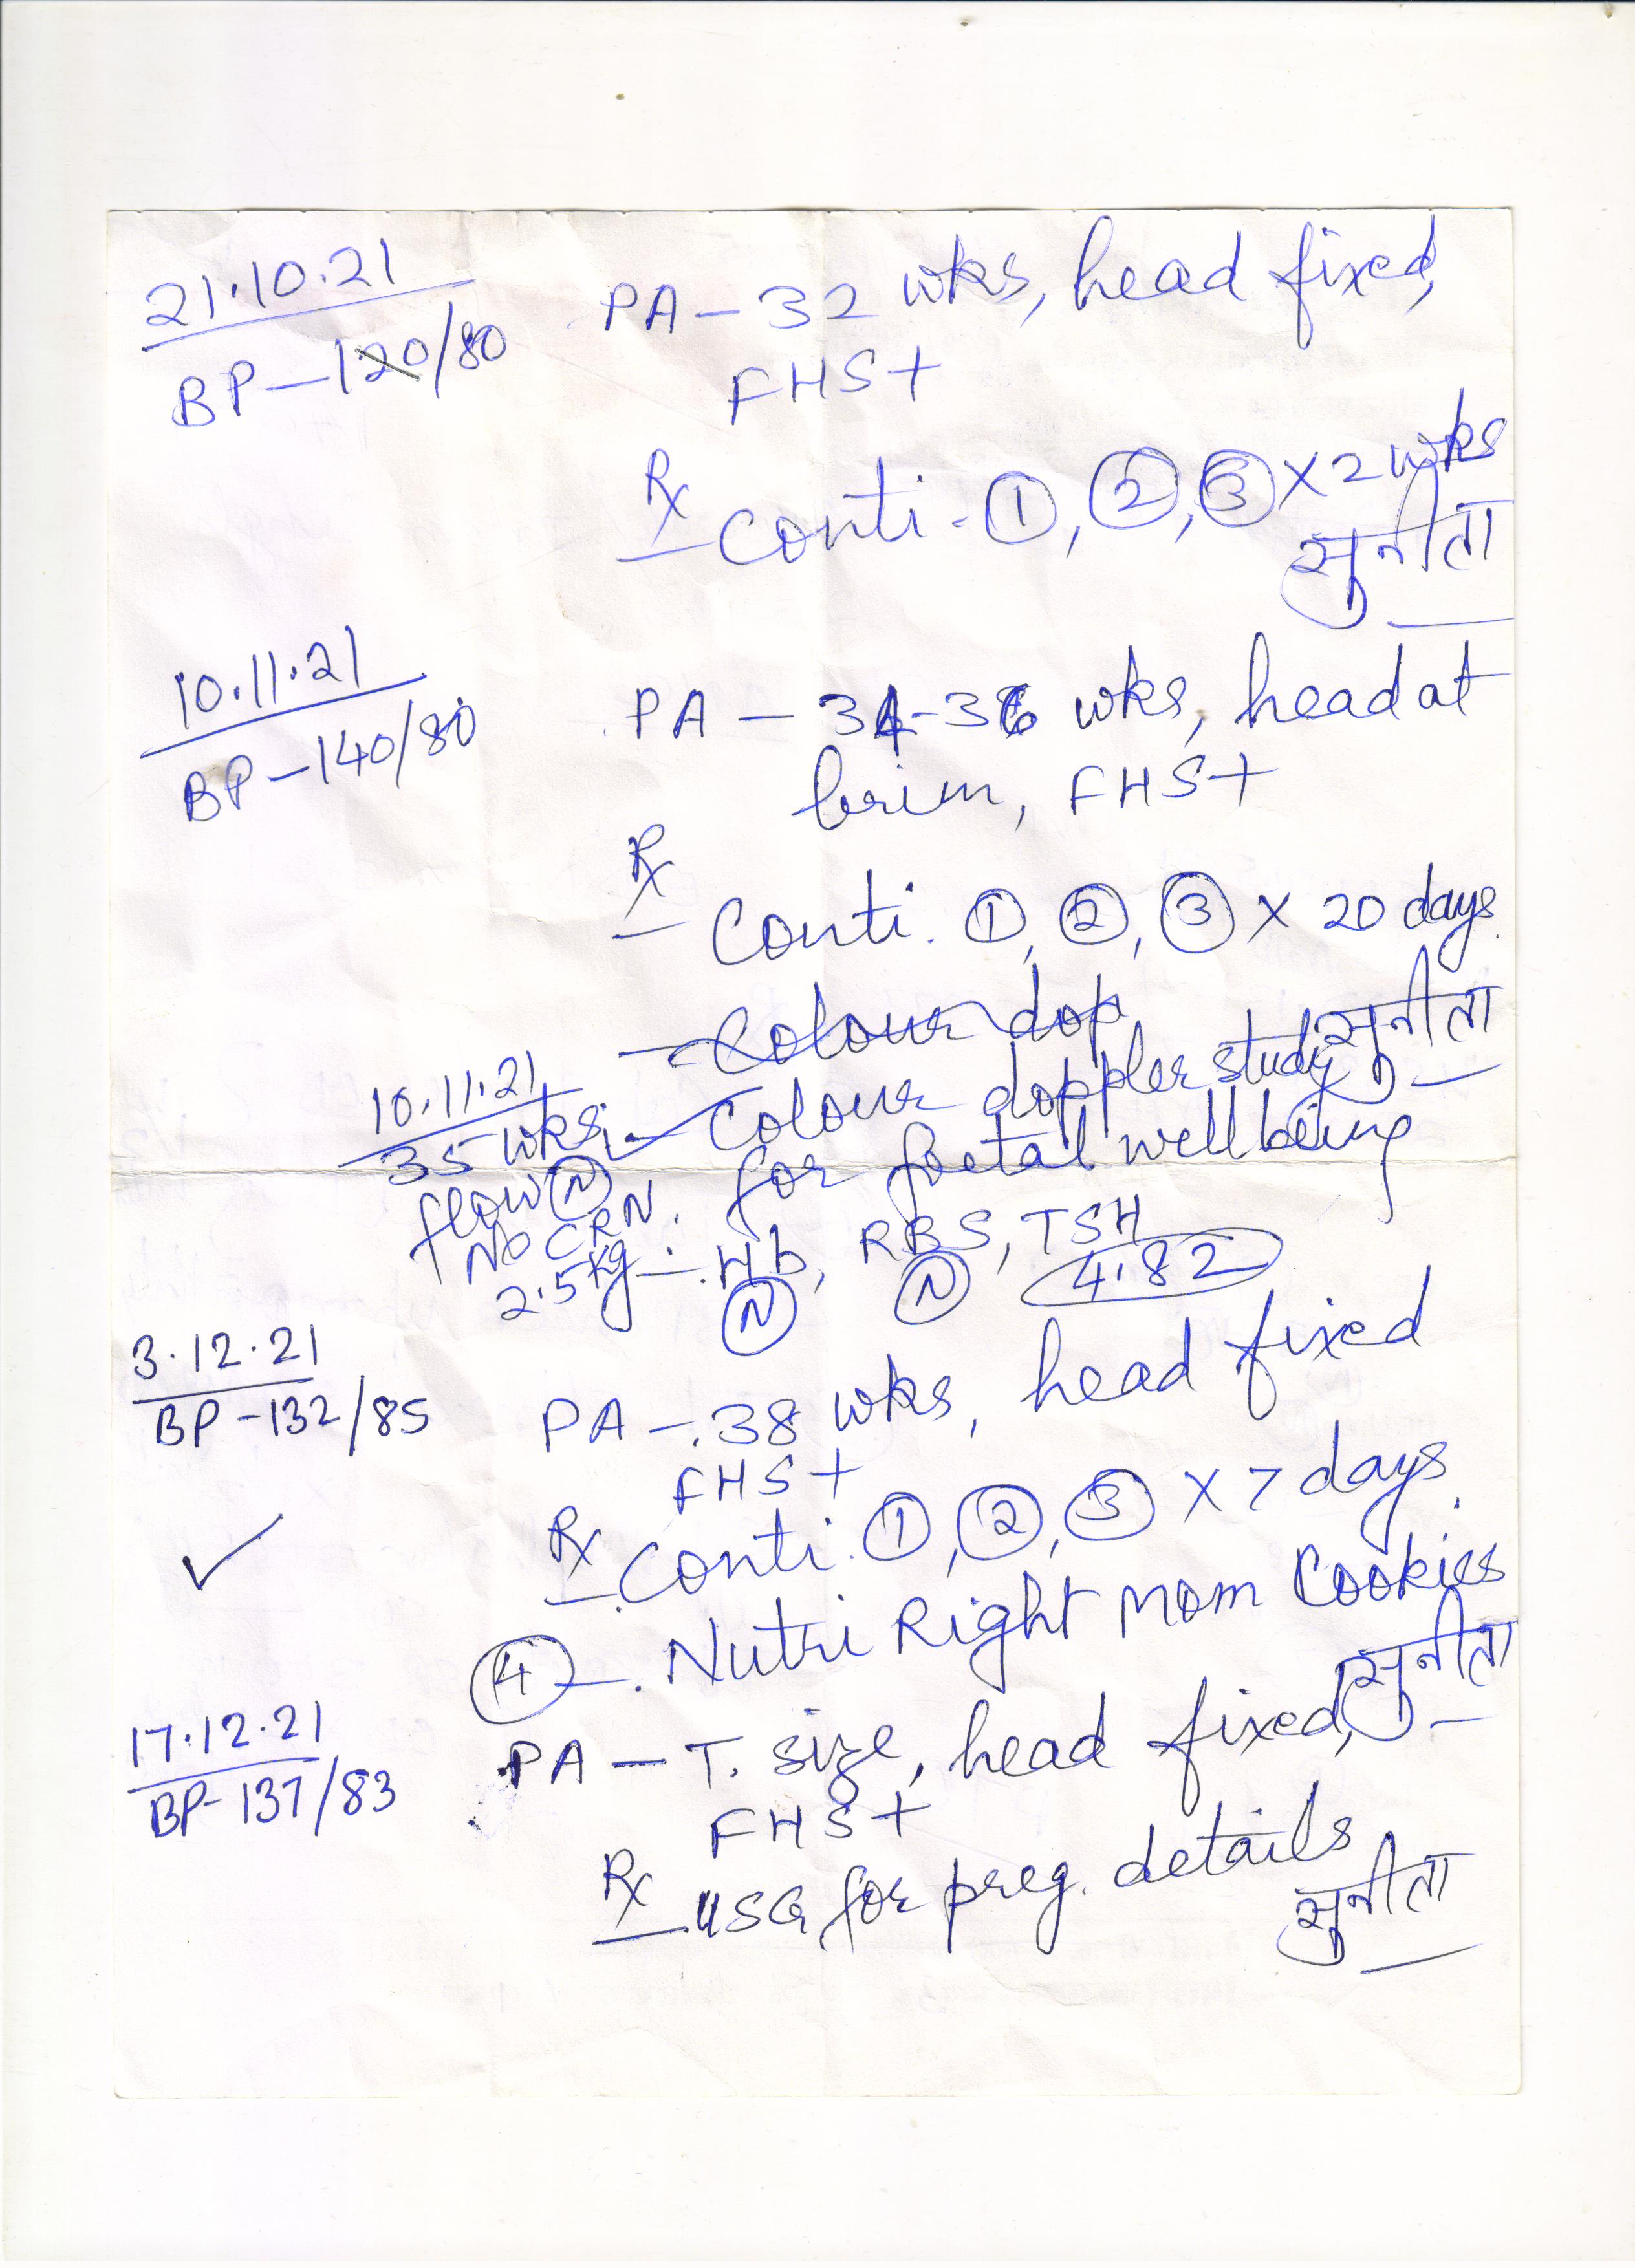 21.10.21
BP - 120/80
PA - 32 wks, head fixed,
FHS+
Rx
Conti. ①, ②, ③ x 2 wks
सुनीता
10.11.21
BP - 140/80
PA - 34-36 wks, head at
brim, FHS+
Rx
Conti. ①, ②, ③ x 20 days.
सुनीता
- Colour dop
- Colour doppler study
for foetal well being
10.11.21
35 wks,
flow Ⓝ
No CRN.
2.5 kg
- Hb, RBS, TSH
Ⓝ Ⓝ 4.82
3.12.21
BP - 132/85
PA - 38 wks, head fixed
FHS+
Rx
Conti. ①, ②, ③ x 7 days.
④ - Nutri Right Mom Cookies
सुनीता
17.12.21
BP - 137/83
PA - T. size, head fixed,
FHS+
Rx
USG for preg. details
सुनीता